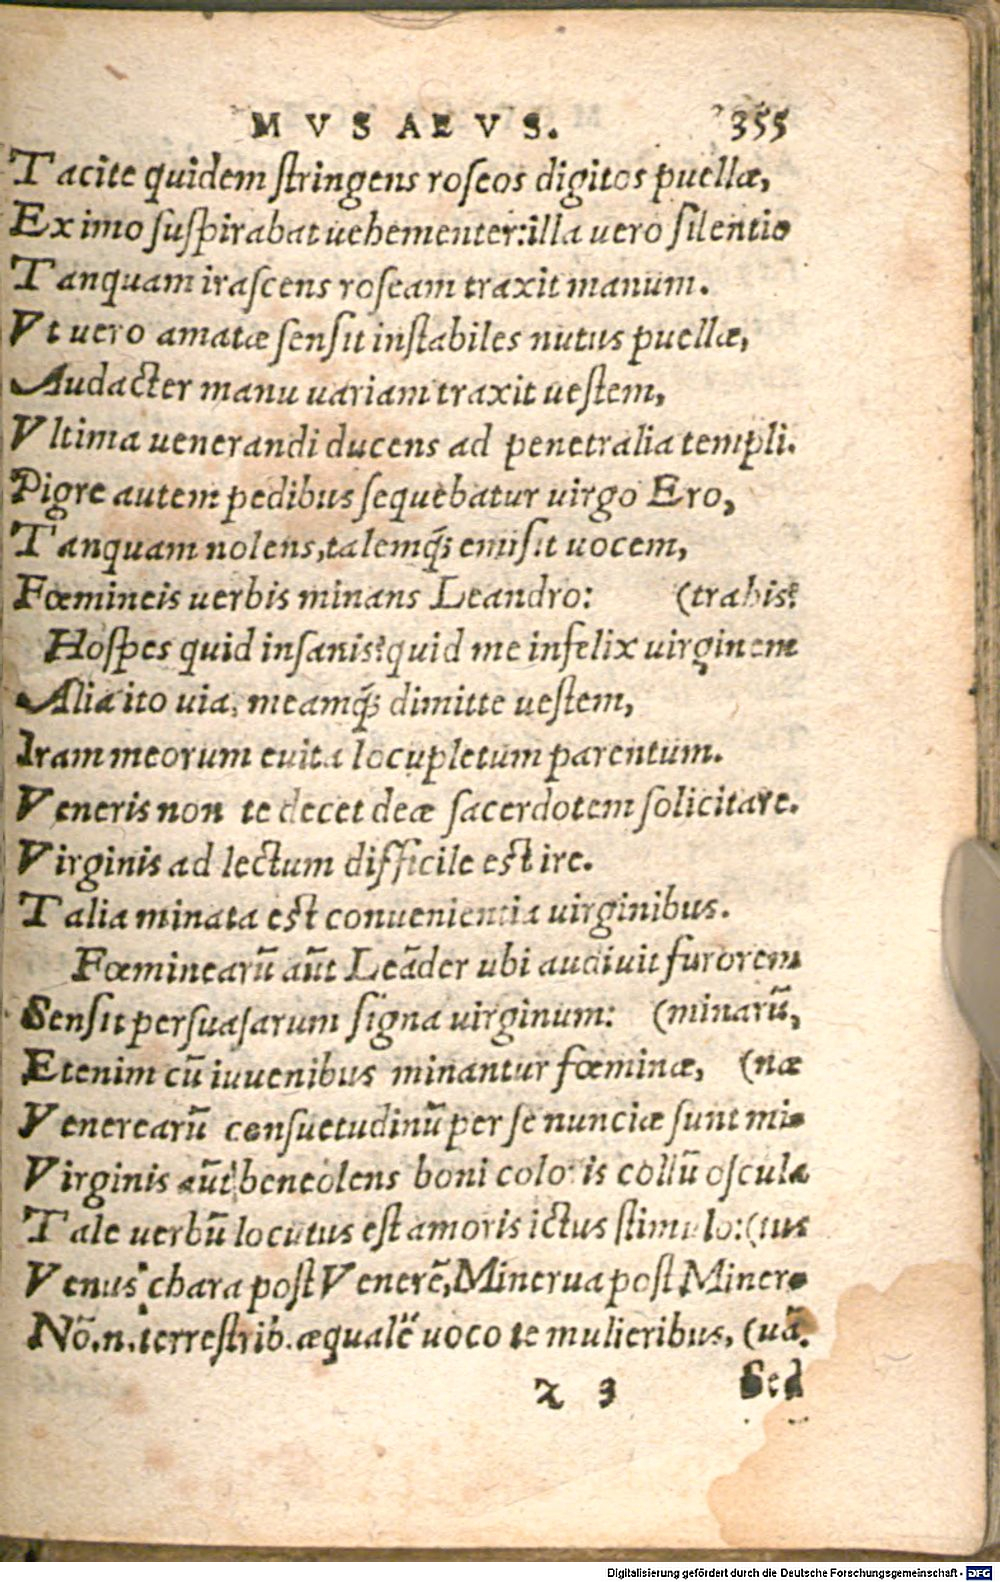 MVSAEVS. 355
Tacite quidem stringens roseos digitos puellæ,
Ex imo suspirabat uehementer: illa uero silentio
Tanquam irascens roseam traxit manum.
Vt uero amatæ sensit instabiles nutus puellæ,
Audacter manu uariam traxit uestem,
Vltima uenerandi ducens ad penetralia templi.
Pigre autem pedibus sequebatur uirgo Ero,
Tanquam nolens, talemq́; emisit uocem,
Fœmineis uerbis minans Leandro: (trahis?
Hospes quid insanis? quid me infelix uirginem
Alia ito uia, meamq́; dimitte uestem,
Iram meorum euita locupletum parentum.
Veneris non te decet deæ sacerdotem solicitare.
Virginis ad lectum difficile est ire.
Talia minata est conuenientia uirginibus.
Fœminearū aūt Leāder ubi audiuit furorem
Sensit persuasarum signa uirginum: (minarū,
Etenim cū iuuenibus minantur fœminæ, (næ
Venerearū consuetudinū per se nunciæ sunt mi-
Virginis aūt beneolens boni coloris collū oscula
Tale uerbū locutus est amoris ictus stimulo: (tus
Venus chara post Venerē, Minerua post Miner-
Nō.n. terrestrib. æqualē uoco te mulieribus, (uā.
z 3 Sed
Digitalisierung gefördert durch die Deutsche Forschungsgemeinschaft - DFG